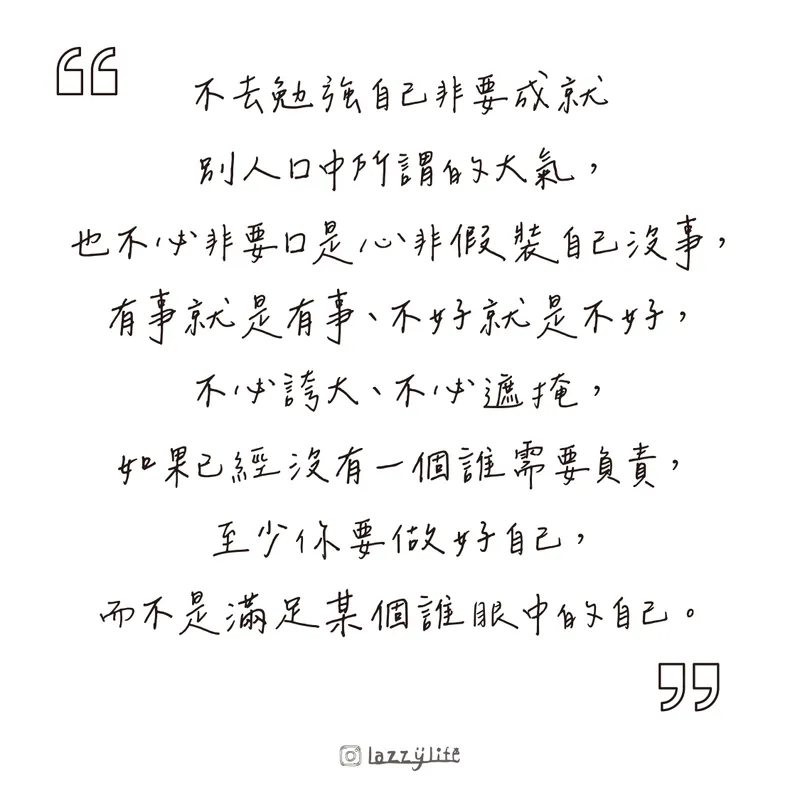 不去勉強自己非要成就
別人口中所謂的大氣，
也不必非要口是心非假裝自己沒事，
有事就是有事、不好就是不好，
不必誇大、不必遮掩，
如果已經沒有一個誰需要負責，
至少你要做好自己，
而不是滿足某個誰眼中的自己。
lazzylife